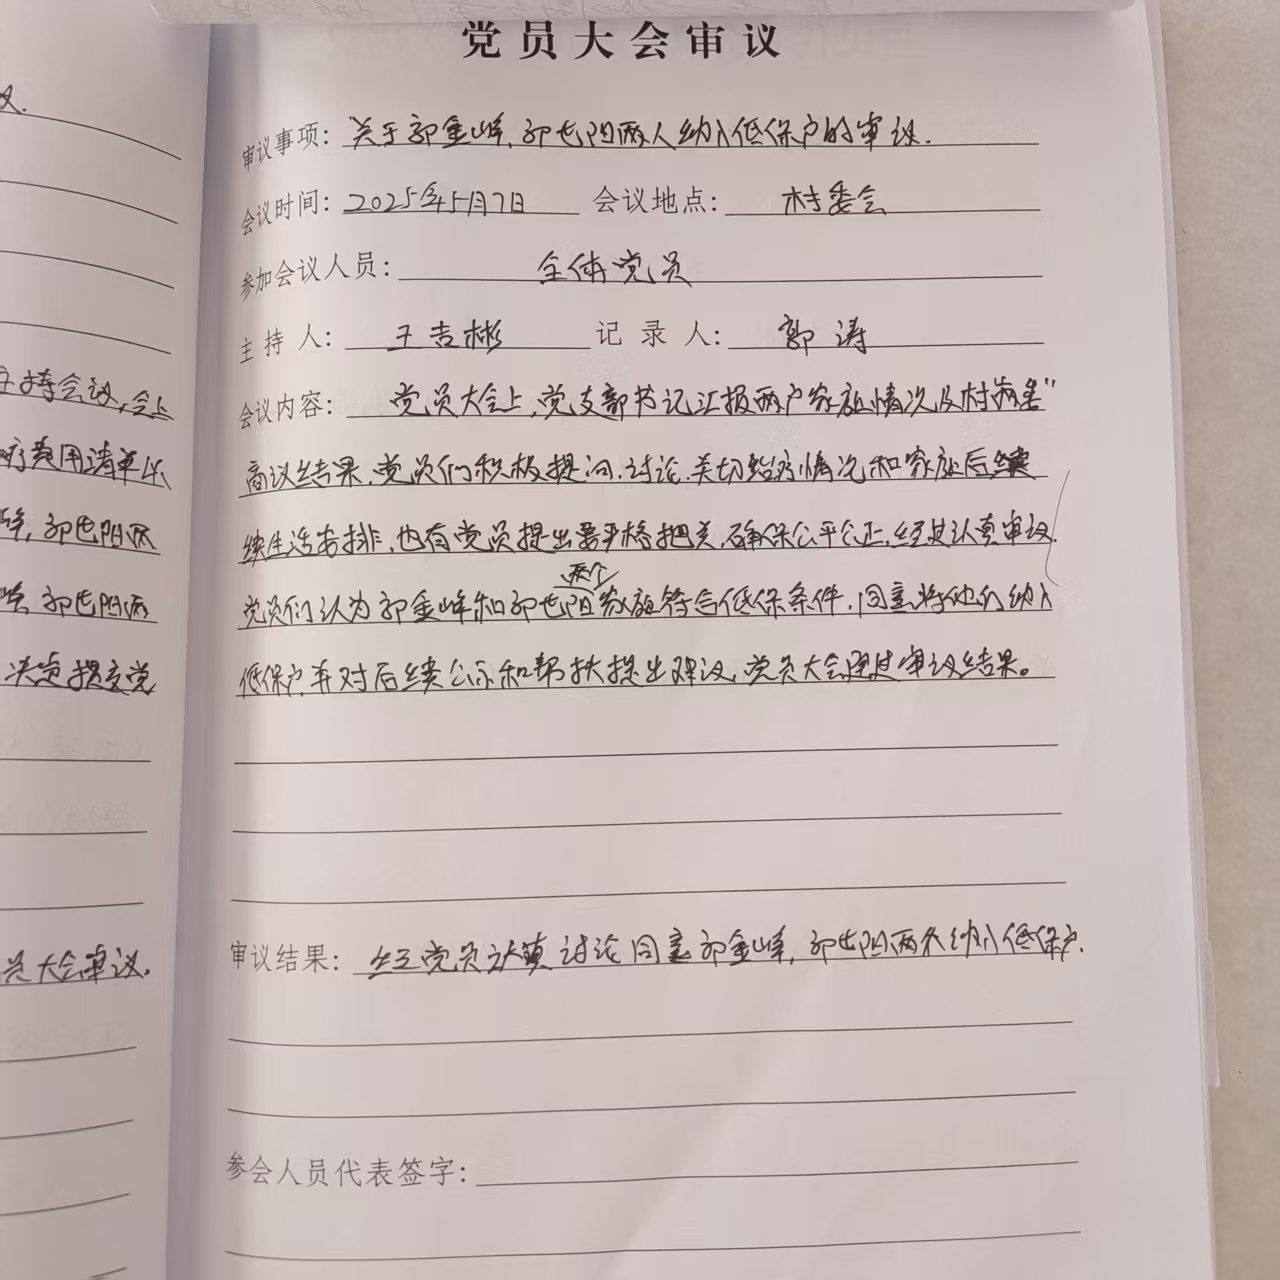 党员大会审议
议.
审议事项：关于郭金峰,郭世阳两人纳入低保户的审议.
会议时间：2025年5月7日 会议地点：村委会
参加会议人员：全体党员
主持人：王吉彬 记录人：郭涛
主持会议,会上
会议内容：党员大会上,党支部书记汇报两户家庭情况及村两委"
疗费用清单以
商议结果,党员们积极提问,讨论,关切治疗情况和家庭后续
峰,郭世阳两
续生活安排,也有党员提出要严格把关,确保公平公正,经过认真审议.
两个
峰 郭世阳两
党员们认为郭金峰和郭世阳家庭符合低保条件,同意将他们纳入
决定提交党
低保户并对后续公示和帮扶提出建议,党员大会通过审议结果。
员大会审议.
审议结果：经党员认真讨论同意郭金峰,郭世阳两人纳入低保户.
参会人员代表签字：